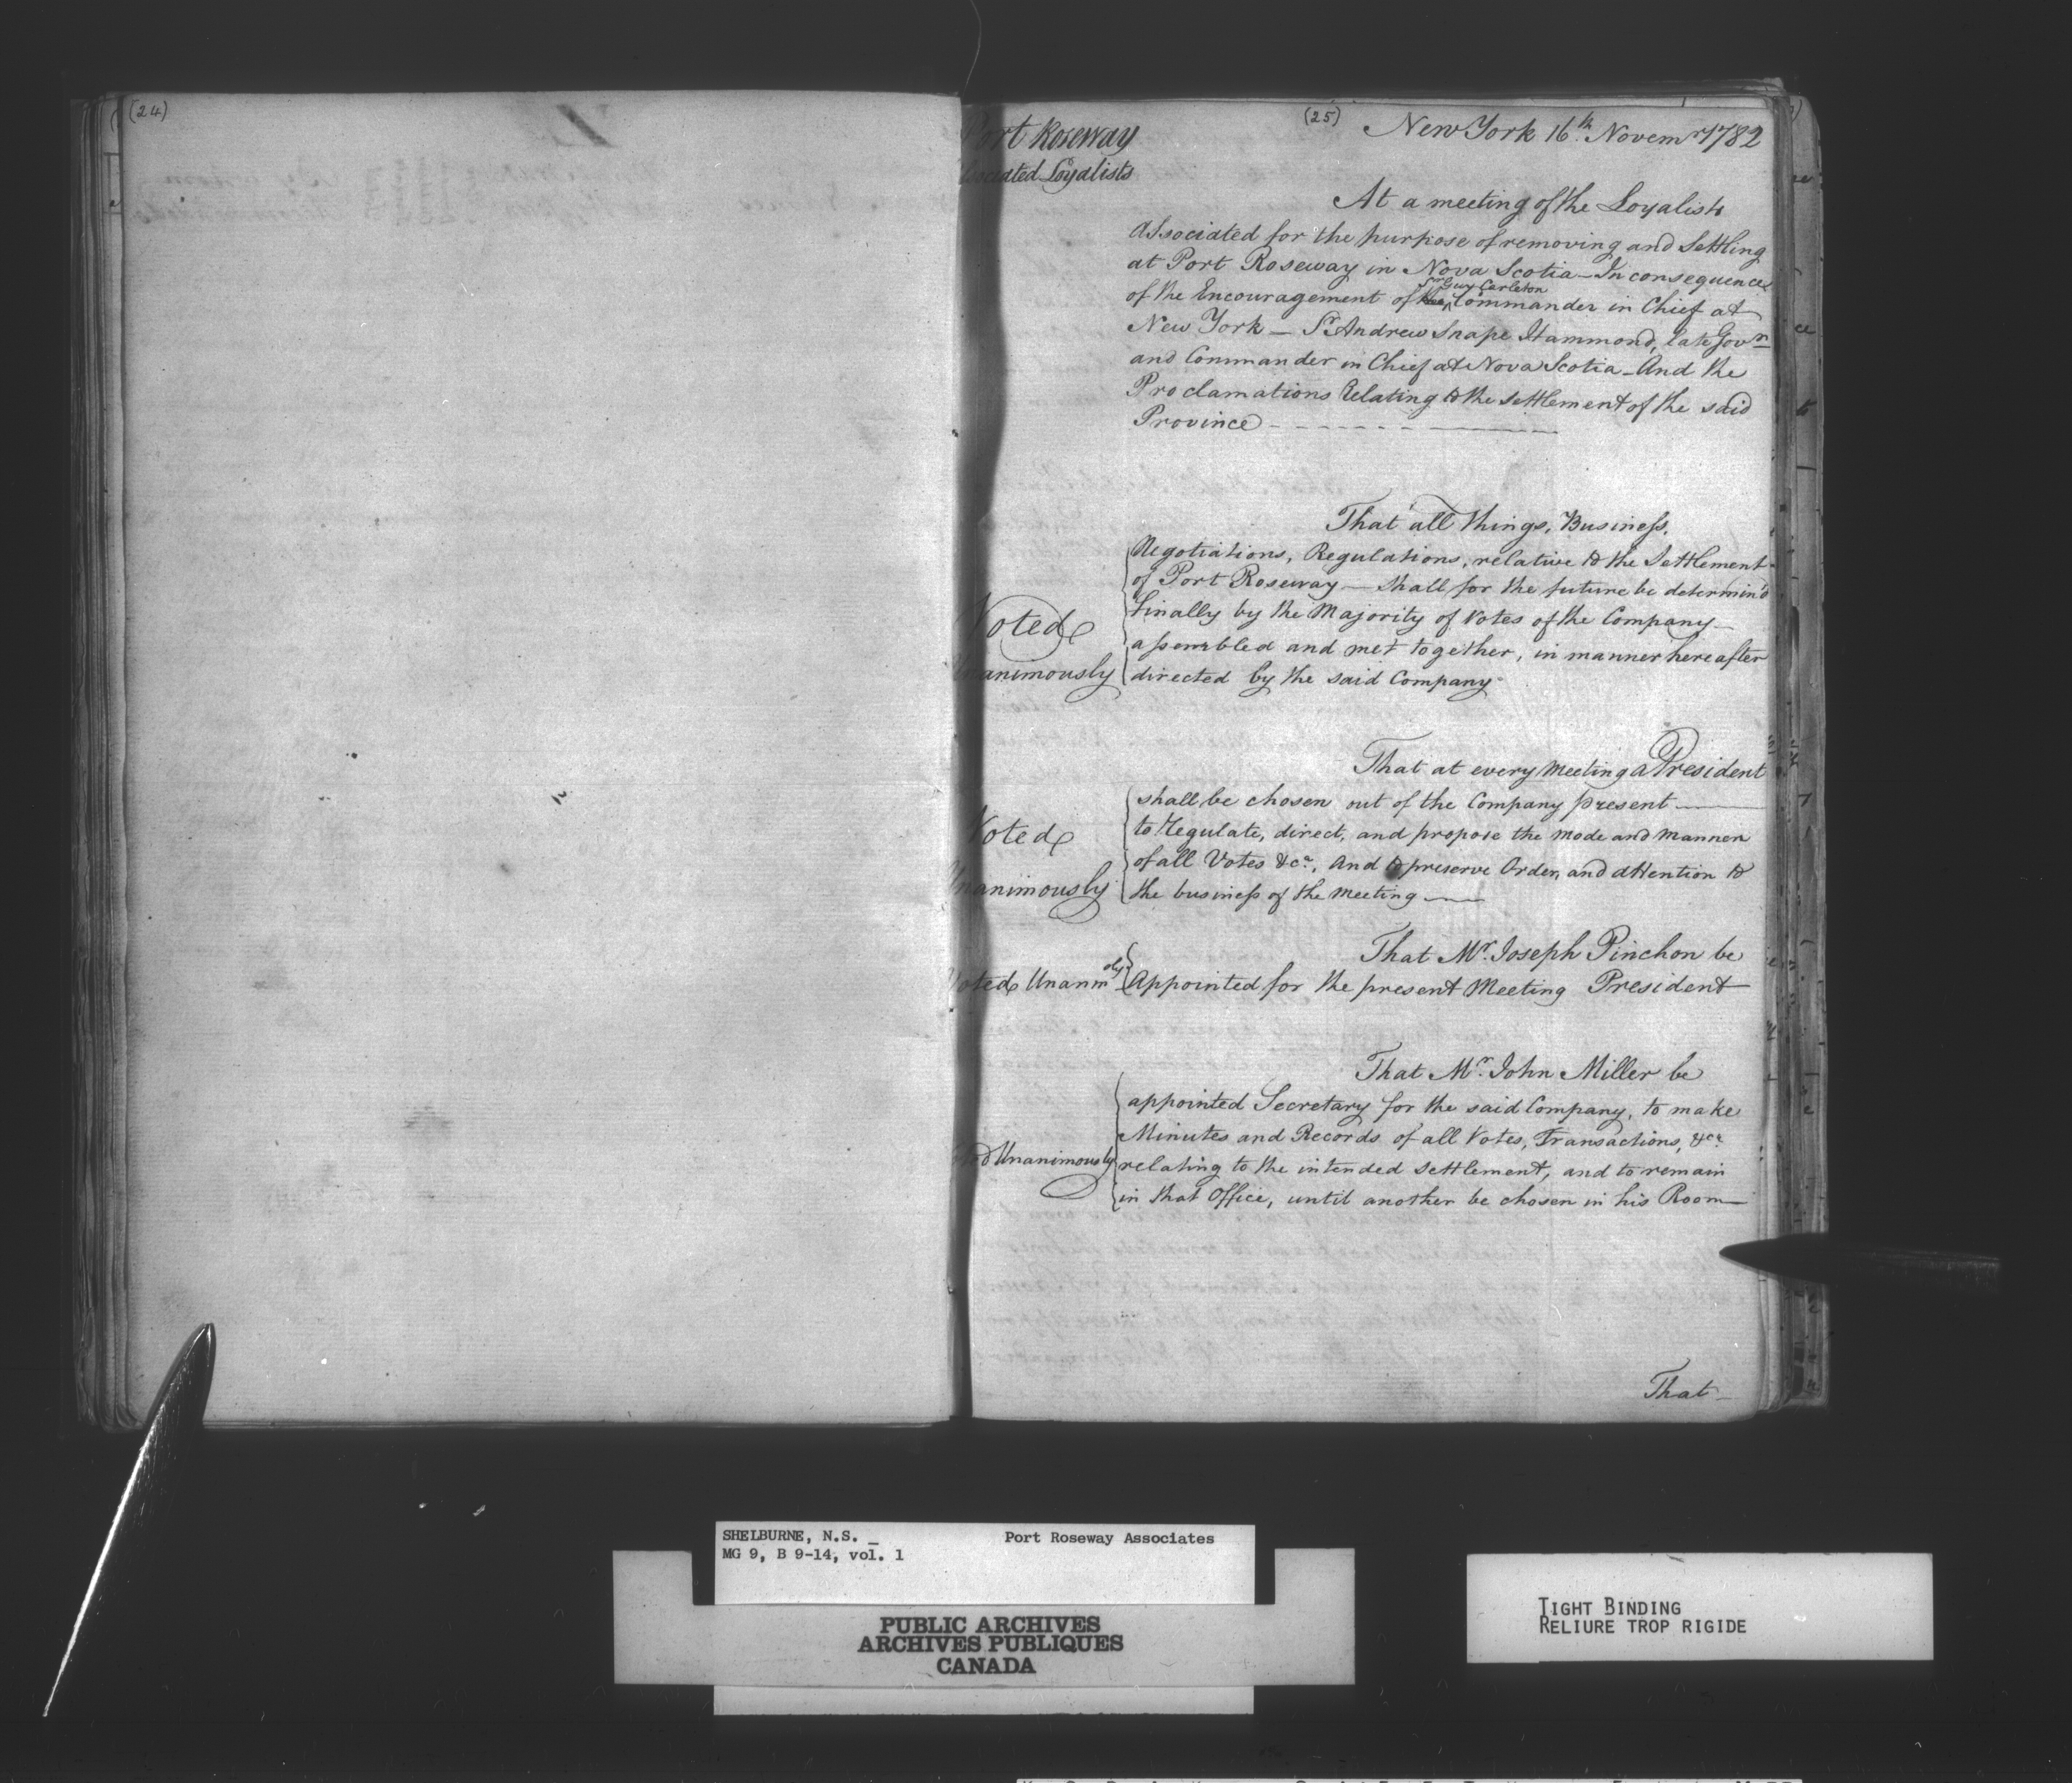 (24)
(25)
New York 16th. Novemr 1782
Port Roseway
sociated Loyalists
At a meeting of the Loyalists
Associated for the purpose of removing and Settling
at Port Roseway in Nova Scotia — In consequence
Sr Guy Carleton
of the Encouragement of the ^ Commander in Chief at
New York — Sr. Andrew Snape Hammond, late Govrn
and Commander in Chief at Nova Scotia — And the
Proclamations Relating to the settlement of the said
Province
That all things, Business,
Negotiations, Regulations, relative to the Settlement
of Port Roseway — shall for the future be determin'd
finally by the Majority of Votes of the Company
assembled and met together, in manner hereafter
directed by the said Company
Voted
Unanimously
That at every Meeting a President
shall be chosen out of the Company present
to regulate, direct, and propose the mode and manner
of all Votes &ca., And to preserve Order, and attention to
the business of the meeting
Voted
Unanimously
That Mr. Joseph Pinchon be
Voted Unanimously
Appointed for the present Meeting President
That Mr. John Miller be
appointed Secretary for the said Company, to make
Minutes and Records of all Votes, Transactions, &ca
relating to the intended settlement, and to remain
in that Office, until another be chosen in his Room
Unanimously
That
SHELBURNE, N.S. _ Port Roseway Associates
MG 9, B 9-14, vol. 1
PUBLIC ARCHIVES
ARCHIVES PUBLIQUES
CANADA
TIGHT BINDING
RELIURE TROP RIGIDE